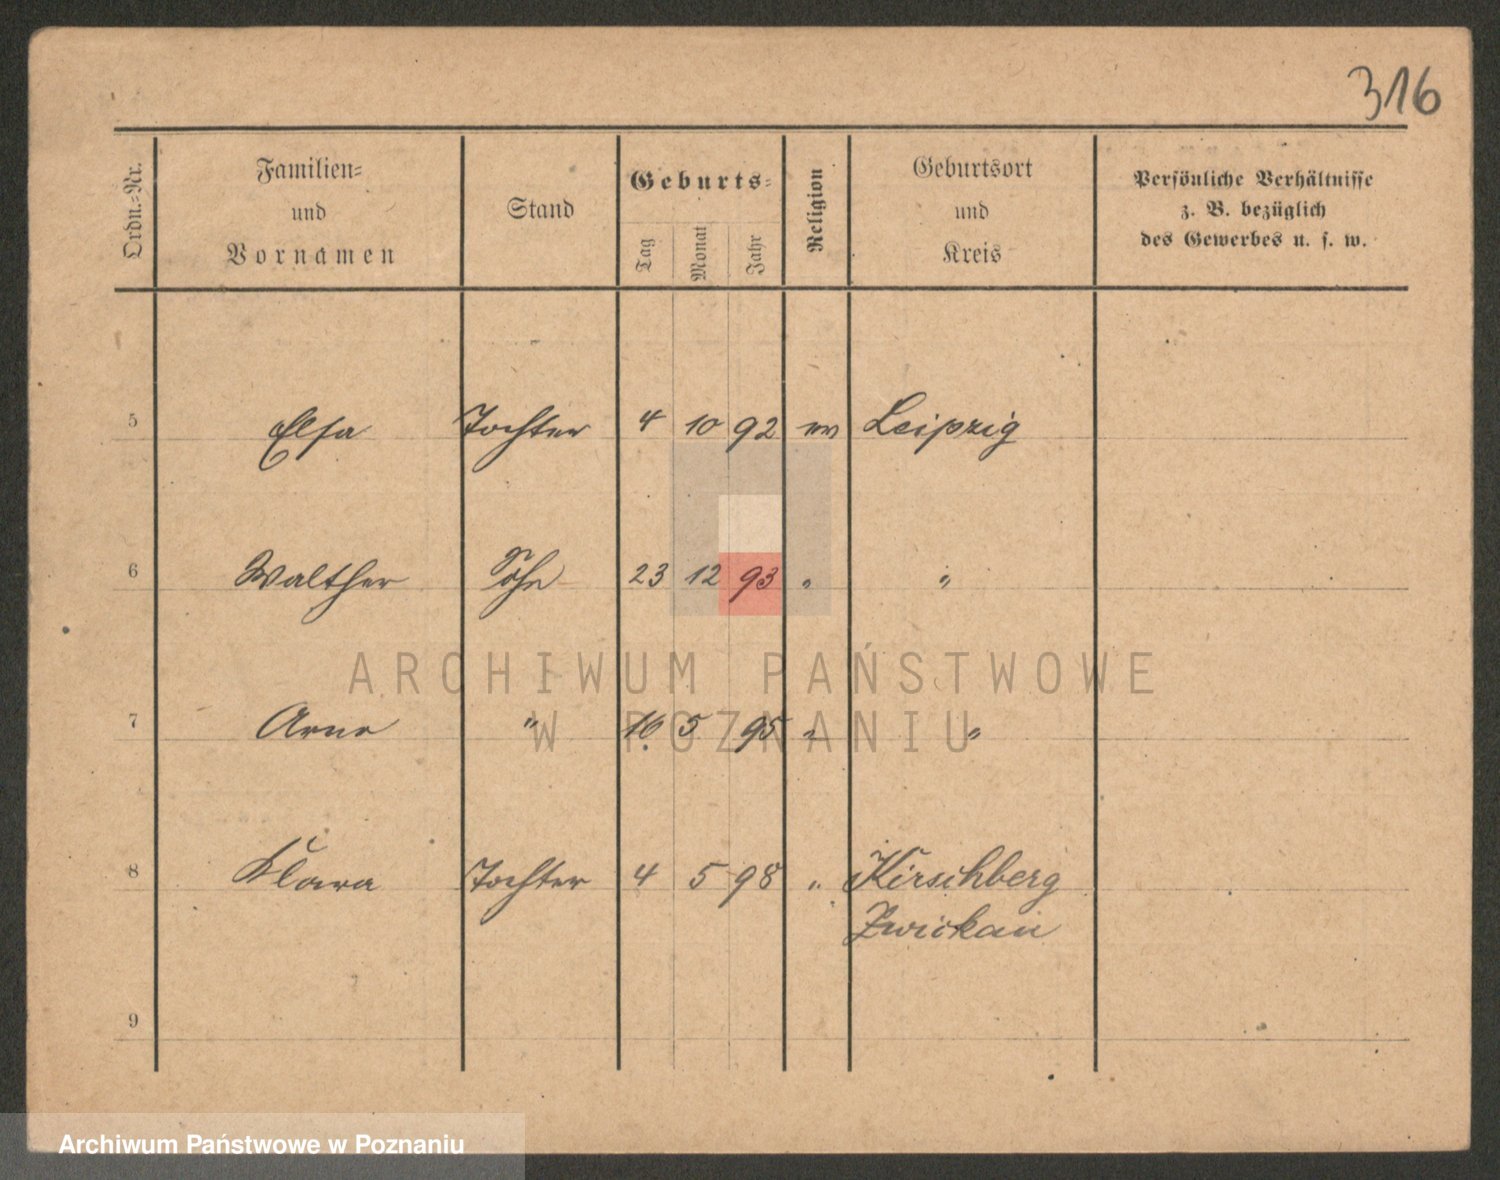 316
Ordn.-Nr.
Familien-
und
Vornamen
Stand
Geburts-
Tag
Monat
Jahr
Religion
Geburtsort
und
Kreis
Persönliche Verhältnisse
z. B. bezüglich
des Gewerbes u. s. w.
5 Elsa Tochter 4 10 92 ev Leipzig
6 Walther Sohn 23 12 93 " "
ARCHIWUM PAŃSTWOWE
7 Arno " 16 5 95 " "
W POZNANIU
8 Klara Tochter 4 5 98 " Kirschberg
Zwickau
9
Archiwum Państwowe w Poznaniu